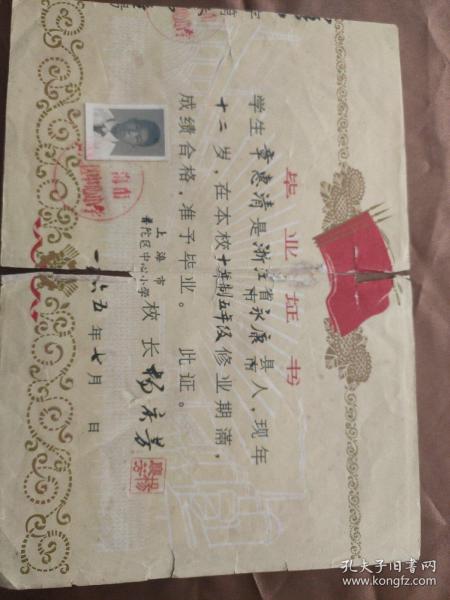 毕业证书
学生章惠清是浙江省永康县人,现年
市 南
十二岁,在本校十年制五年级修业期满,
成绩合格,准予毕业。此证。
上海市
普陀区中心小学
校长 杨
一九六五年七月 日
孔夫子旧书网
www.kongfz.com